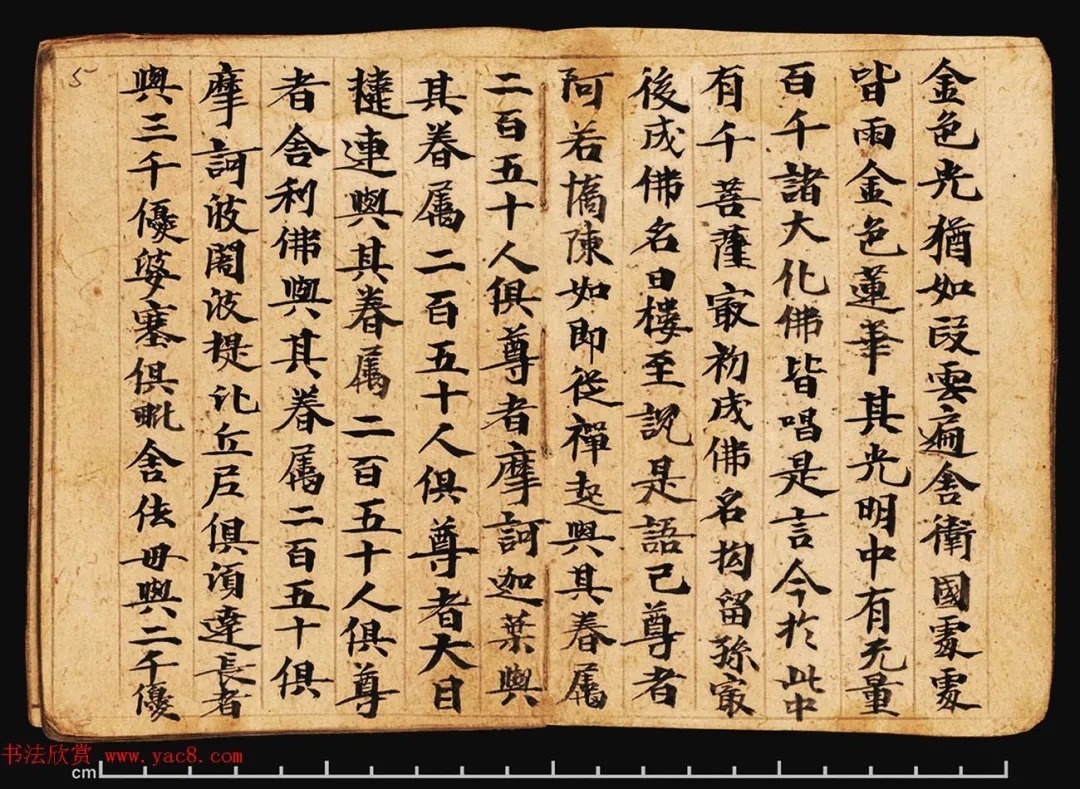 金色光猶如段雲遍舍衛國處處
皆雨金色蓮華其光明中有无量
百千諸大化佛皆唱是言今於此中
有千菩薩冣初成佛名拘留孫冣
後成佛名曰樓至說是語已尊者
阿若憍陳如即從禪起與其眷属
二百五十人俱尊者摩訶迦葉與
其眷属二百五十人俱尊者大目
揵連與其眷属二百五十人俱尊
者舍利佛與其眷属二百五十俱
摩訶波闍波提比丘尼俱須達長者
與三千優婆塞俱毗舍佉毋與二千優
5
书法欣赏 www.yac8.com
cm